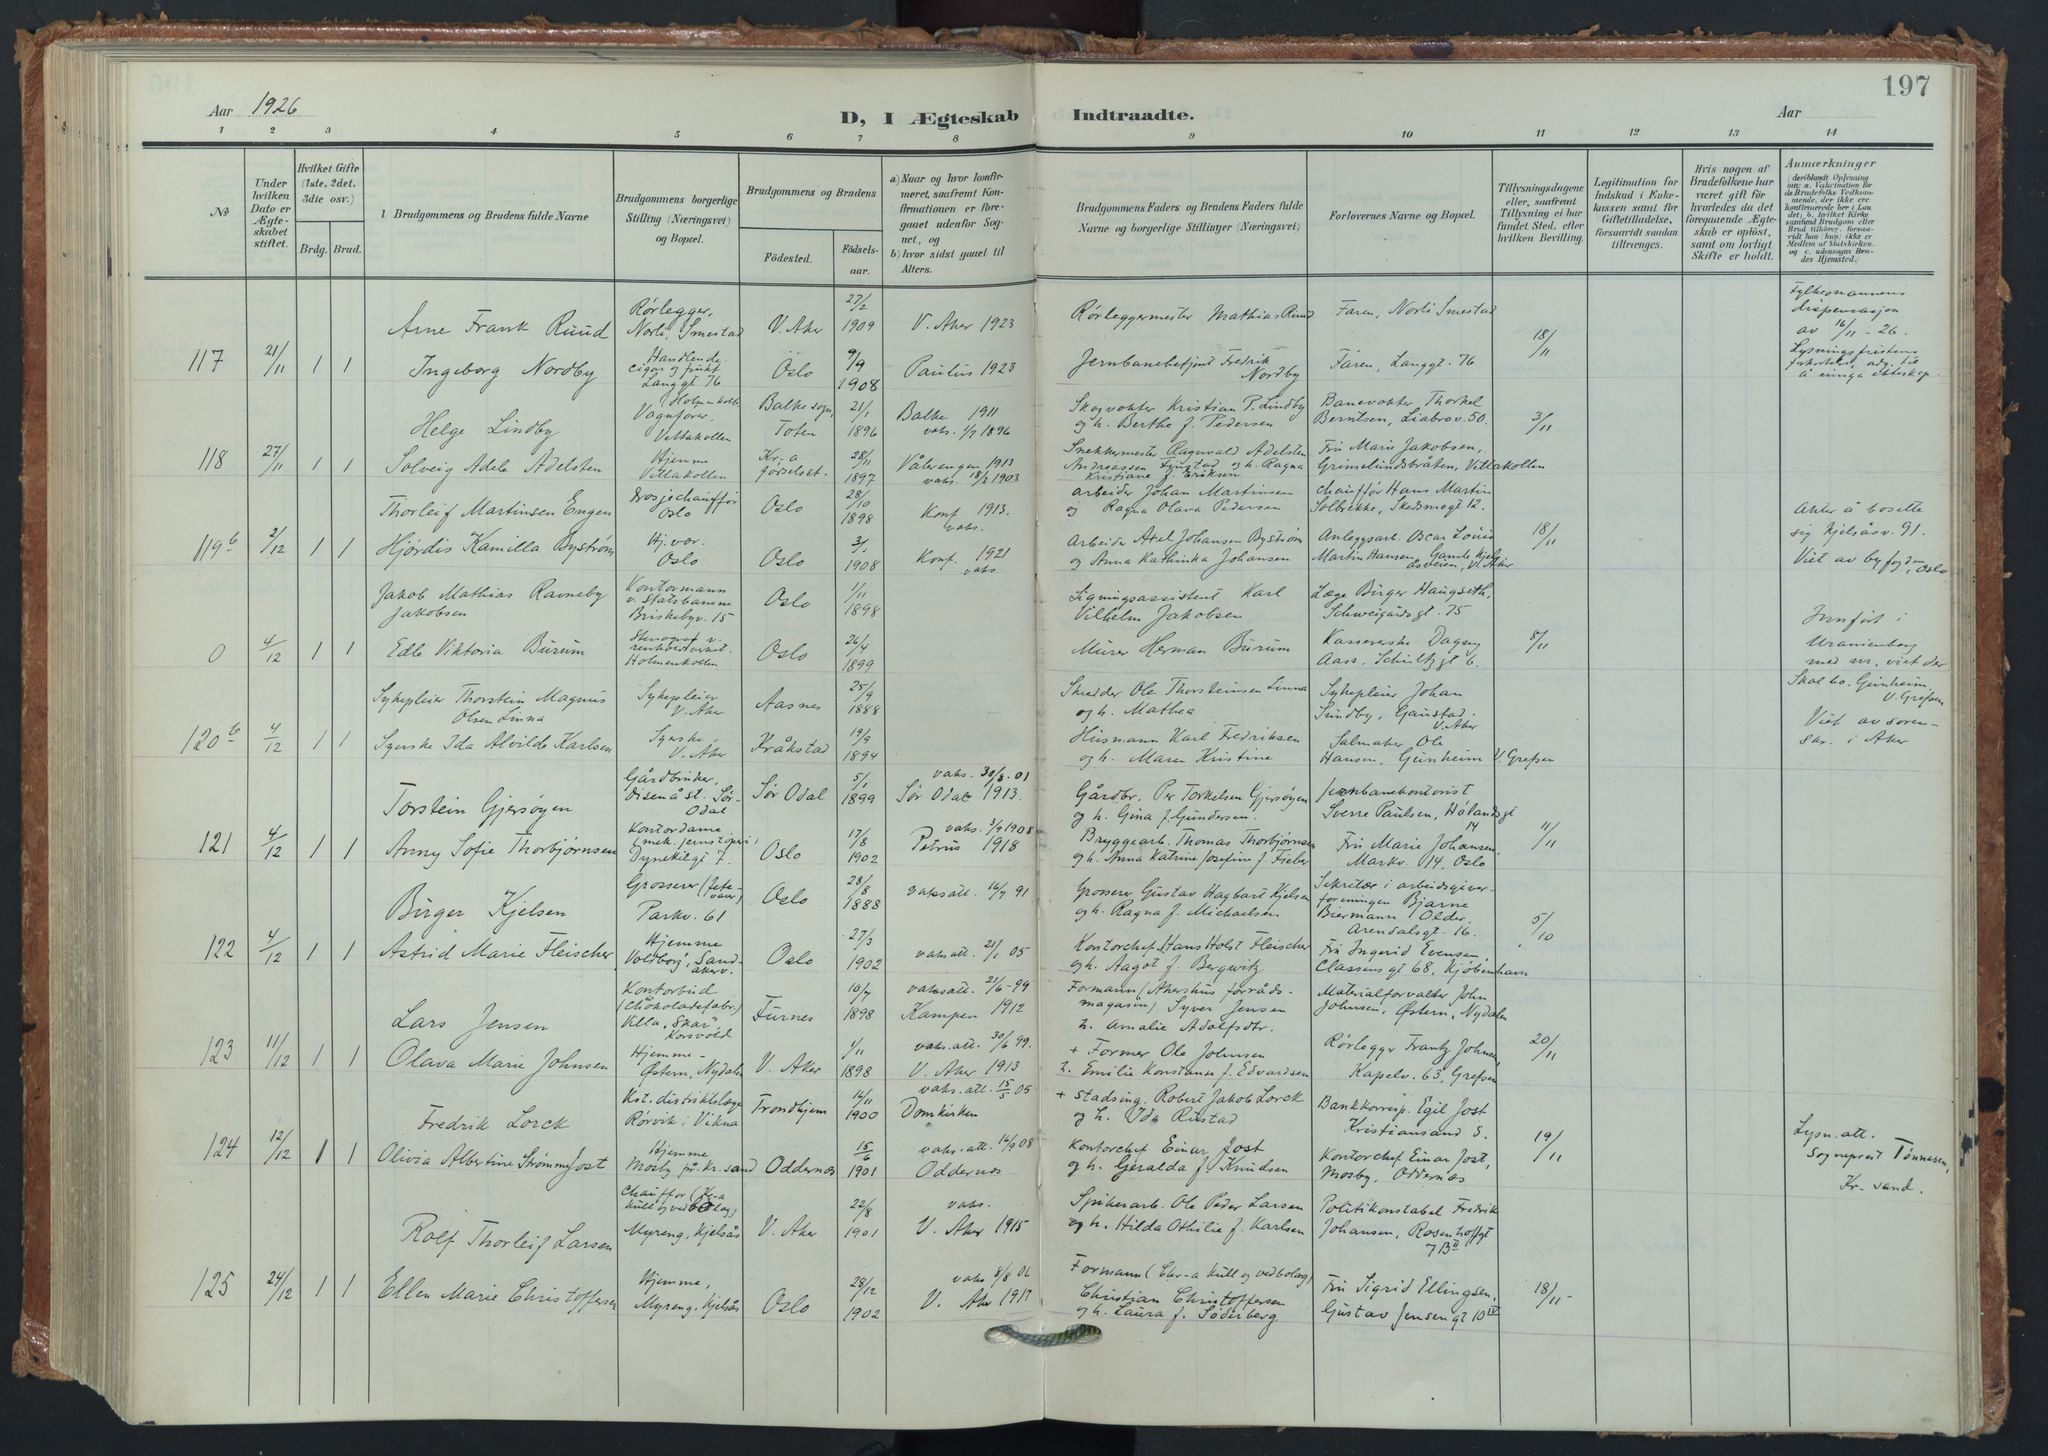 197
Aar 1926
D, I Ægteskab Indtraadte.
Aar
1 2 3 4 5 6 7 8 9 10 11 12 13 14
No
Under hvilken Dato er Ægteskabet stiftet.
Hvilket Gifte (1ste, 2det, 3die osv.)
Brdg. Brud.
1 Brudgommens og Brudens fulde Navne
Brudgommens borgerlige Stilling (Næringsvei) og Bopæl.
Brudgommens og Brudens
Födested.
Födselsaar.
a) Naar og hvor konfirmeret, saafremt Konfirmationen er foregaaet udenfor Sognet, og
b) hvor sidst gaaet til Alters.
Brudgommens Faders og Brudens Faders fulde Navne og borgerlige Stillinger (Næringsvei)
Forlovernes Navne og Bopæl.
Tillysningsdagene eller, saafremt Tillysning ei har fundet Sted, efter hvilken Bevilling.
Legitimation for Indskud i Enkekassen samt for Giftetilladelse, forsaavidt saadan tiltrænges.
Hvis nogen af Brudefolkene har været gift før hvorledes da det foregaaende Ægteskab er opløst, samt om lovligt Skifte er holdt.
Anmærkninger
117 21/11 1 1
Arne Frank Ruud
Rørlegger, Norli, Smestad
V. Aker
27/2 1909
V. Aker 1923
Rørleggermester Mathias Ruud
Faren, Norli Smestad
18/11
Fylkesmannens dispensasjon av 16/11 - 26.
Ingeborg Nordby
Langgt 76
Oslo
9/9 1908
Paulus 1923
Jernbanebetjent Fredrik Nordby
Faren, Langgt. 76
118 27/11 1 1
Helge Lindby
Vognfører, Vettakollen
Balke sogn, Toten
21/1 1896
Balke 1911
vaks. 1/7 1896
Skogvokter Kristian P. Lindby og h. Berthe f. Pedersen
Banevokter Thorkel Berntsen, Liabrov. 50.
3/11
Solveig Adele Adelsten
Hjemme Vettakollen
Kr-a fødselsst.
28/11 1897
Vålerengen 1913
vaks. 18/2 1903
Snekkermester Ragnvald Adelsten Andreassen Fjustad og h. Ragna Kristiane f. Eriksen
Fru Marie Jakobsen, Grimelundsbråten, Vettakollen
119b 2/12 1 1
Thorleif Martinsen Engen
Drosjechauffør Oslo
Oslo
28/10 1898
Konf. 1913. vaks.
Arbeider Johan Martinsen og Ragna Olava Pedersen
Chauffør Hans Martin Solbekke, Skedsmogt 12.
18/11
Akter å bosette sig Kjelsåsv. 91.
Hjørdis Kamilla Byström
Hj. vær. Oslo
Oslo
3/1 1908
Konf. 1921 vaks
Arbeider Axel Johansen Byström og Anna Kathinka Johansen
Anleggsarb. Oscar Louis Martin Hansen, Gamle Kjelsåsveien, V. Aker
Viet av byfogden, Oslo
0 4/12 1 1
Jakob Mathias Ravneby Jakobsen
Kontormann v. Statsbanene Briskebyv. 15
Oslo
1/11 1898
Ligningsassistent Karl Vilhelm Jakobsen
Læge Birger Haugseth, Schweigårdsgt. 75
8/11
Innført i Uranienborg med nr, viet der
Edle Viktoria Burum
Holmenkollen
Oslo
26/4 1899
Murer Herman Burum
Kassererske Dagny Aass, Schultzgt 6.
120b 4/12 1 1
Sykepleier Thorstein Magnus Olsen Linna
Sykepleier V. Aker
Aasnes
25/9 1888
Skredder Ole Thorsteinsen Linna og h. Mathea
Sykepleier Johan Sundby, Gaustad. V. Aker
Skal bo. Grinheim, V. Grefsen
Syerske Ida Alvilde Karlsen
Syerske V. Aker
Kråkstad
19/9 1894
Husmann Karl Fredriksen og h. Maren Kristine
Salmaker Ole Hansen, Grinheim V. Grefsen
Viet av sorenskr. i Aker
121 4/12 1 1
Torstein Gjersøyen
Gårdbruker, Disenå st. Sør-Odal
Sør Odal
5/1 1899
vaks. 30/8 - 01
Sør Odal 1913.
Gårdbr. Per Torkelsen Gjersøyen og h. Gina f. Gundersen.
Jernbanekontorist Sverre Paulsen, Hølandsgt 14
11/11
Anny Sofie Thorbjørnsen
Kontordame (mek. jernstøperi) Dynekilgt 7.
Oslo
17/8 1902
vaks. 3/9 1908
Petrus 1918
Bryggearb. Thomas Thorbjørnsen og h. Anna Katrine Josefine f. Fieber
Fru Marie Johansen. Markv. 14, Oslo
122 4/12 1 1
Birger Kjelsen
Grosserer (fetevarer) Parkv. 61
Oslo
28/8 1888
vaksatt. 16/7 91
Grosserer Gustav Hagbart Kjelsen og h. Ragna f. Michaelsen
Sekretær i arbeidsgiverforeningen Bjarne Biermann Older. Arendalsgt. 16.
5/10
Astrid Marie Fleischer
Hjemme Voldborg, Sandakerv.
Oslo
27/3 1902
vaksatt. 21/1 05
Kontorchef Hans Holst Fleischer og h. Aagot f. Bergwitz
Fru Ingerid Evensen, Classensgt 68, Kjøbenhavn
123 11/12 1 1
Lars Jensen
Kontorbud (Chokoladefabr.) Villa "Skar", Korsvold
Furnes
10/7 1898
vaksatt. 21/6 - 99
Kampen 1912
Formann (Akershus forrådsmagasin) Syver Jensen h. Amalie Adolfsdtr.
Materialforvalter John Johnsen, Østern, Nydalen
20/11
Olava Marie Johnsen
Hjemme - Østern, Nydalen
V. Aker
1/11 1898
vaks. att. 30/6 99.
V. Aker 1913
+ Former Ole Johnsen h. Emilie Konstanse f. Edvardsen
Rørlegger Frantz Johnsen, Kapelv. 63, Grefsen
124 12/12 1 1
Fredrik Lorck
Kst. distriktslæge Rørvik i Vikna
Trondhjem
14/11 1900
vaks. att. 15/5 05
Domkirken
+ Stadsing. Robert Jakob Lorck og h. Ida Rustad
Bankkorresp. Egil Jost Kristiansand S.
19/11
Lysn. att. Sogneprest Tønnesen, Kr. sand.
Olivia Albertine Strømme Jost
Hjemme Mosby på Kr. sand
Oddernes
15/6 1901
vaks. att. 14/9 08
Oddernes
Kontorchef Einar Jost og h. Geralda f. Knudsen
Kontorchef Einar Jost, Mosby, Oddernes
125 24/12 1 1
Rolf Thorleif Larsen
Chauffør (Kr-a kull og vedbolag) Myreng, Kjelsås
V. Aker
22/8 1901
vaks.
V. Aker 1915
Spikerarb. Ole Peder Larsen og h. Hilda Othilie f. Karlsen
Politikonstabel Fredrik Johansen, Rosenhoffgt 7 B II
18/11
Ellen Marie Christoffersen
Hjemme, Myreng, Kjelsås
Oslo
28/12 1902
vaks 8/8 06
V. Aker 1917
Formann (Chr-a kull og vedbolag) Christian Christoffersen og h. Laura f. Söderberg
Fru Sigrid Ellingsen, Gustav Jensensgt 10 IV